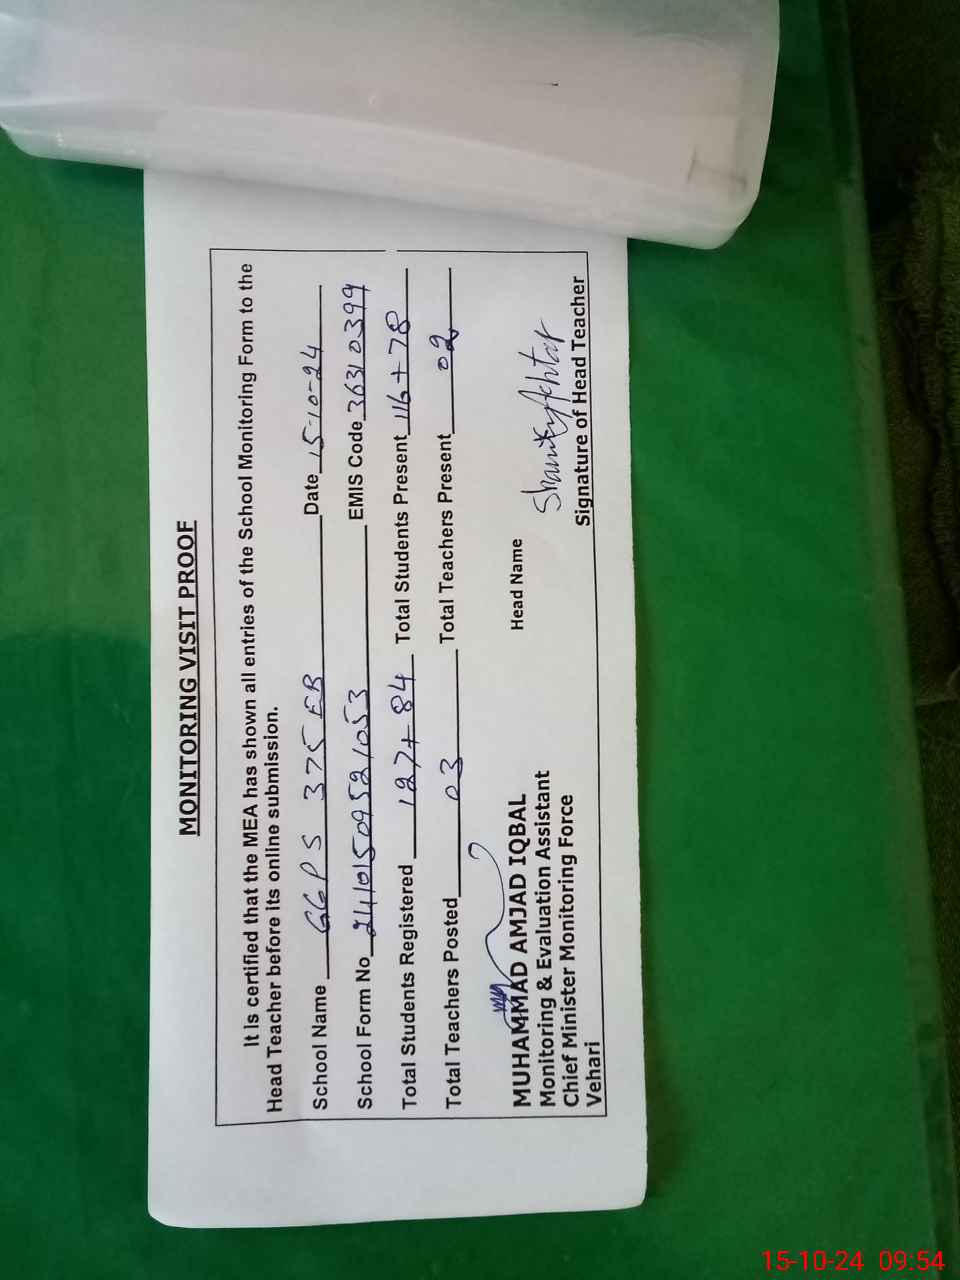 MONITORING VISIT PROOF
It is certified that the MEA has shown all entries of the School Monitoring Form to the
Head Teacher before its online submission.
School Name GGPS 375 EB Date 15-10-24
School Form No 24101509521053 EMIS Code 36310399
Total Students Registered 127+84 Total Students Present 116+78
Total Teachers Posted 03 Total Teachers Present 02
MUHAMMAD AMJAD IQBAL Head Name
Monitoring & Evaluation Assistant
Chief Minister Monitoring Force
Vehari
Signature of Head Teacher
15-10-24 09:54